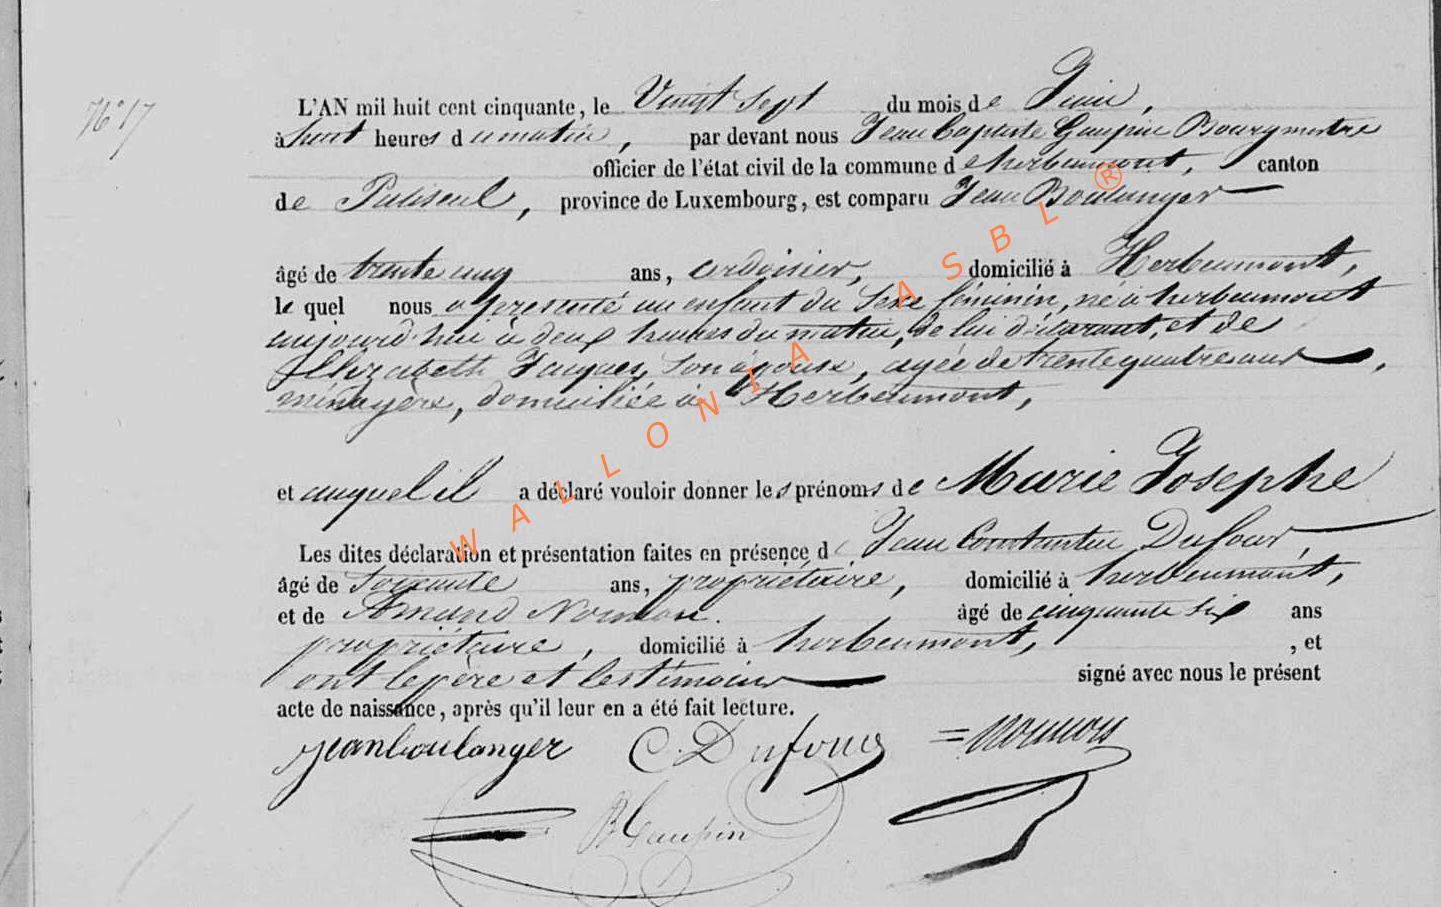 N° 17
L'AN mil huit cent cinquante, le Vingt Sept du mois de Juin,
à huit heures du matin, par devant nous Jean Baptiste Gaupin Bourgmestre
officier de l'état civil de la commune de herbeumont, canton
de Paliseul, province de Luxembourg, est comparu Jean Boulanger
âgé de trente cinq ans, ardoisier, domicilié à Herbeumont,
le quel nous a présenté un enfant du Sexe féminin, né à herbeumont
aujourd'hui à deux heures du matin, de lui déclarant, et de
Elizabeth Jacques, Son épouse, agée de trente quatre ans,
ménagère, domiciliée à Herbeumont,
et auquel il a déclaré vouloir donner les prénoms de Marie Josephe
Les dites déclaration et présentation faites en présence de Jean Constantin Dufour,
âgé de Soixante ans, propriétaire, domicilié à herbeumont,
et de Amand âgé de cinquante six ans
propriétaire, domicilié à herbeumont, , et
ont le père et les témoins signé avec nous le présent
acte de naissance, après qu'il leur en a été fait lecture.
jean boulanger C. Dufour
B Gaupin
WALLONIA ASBL ®